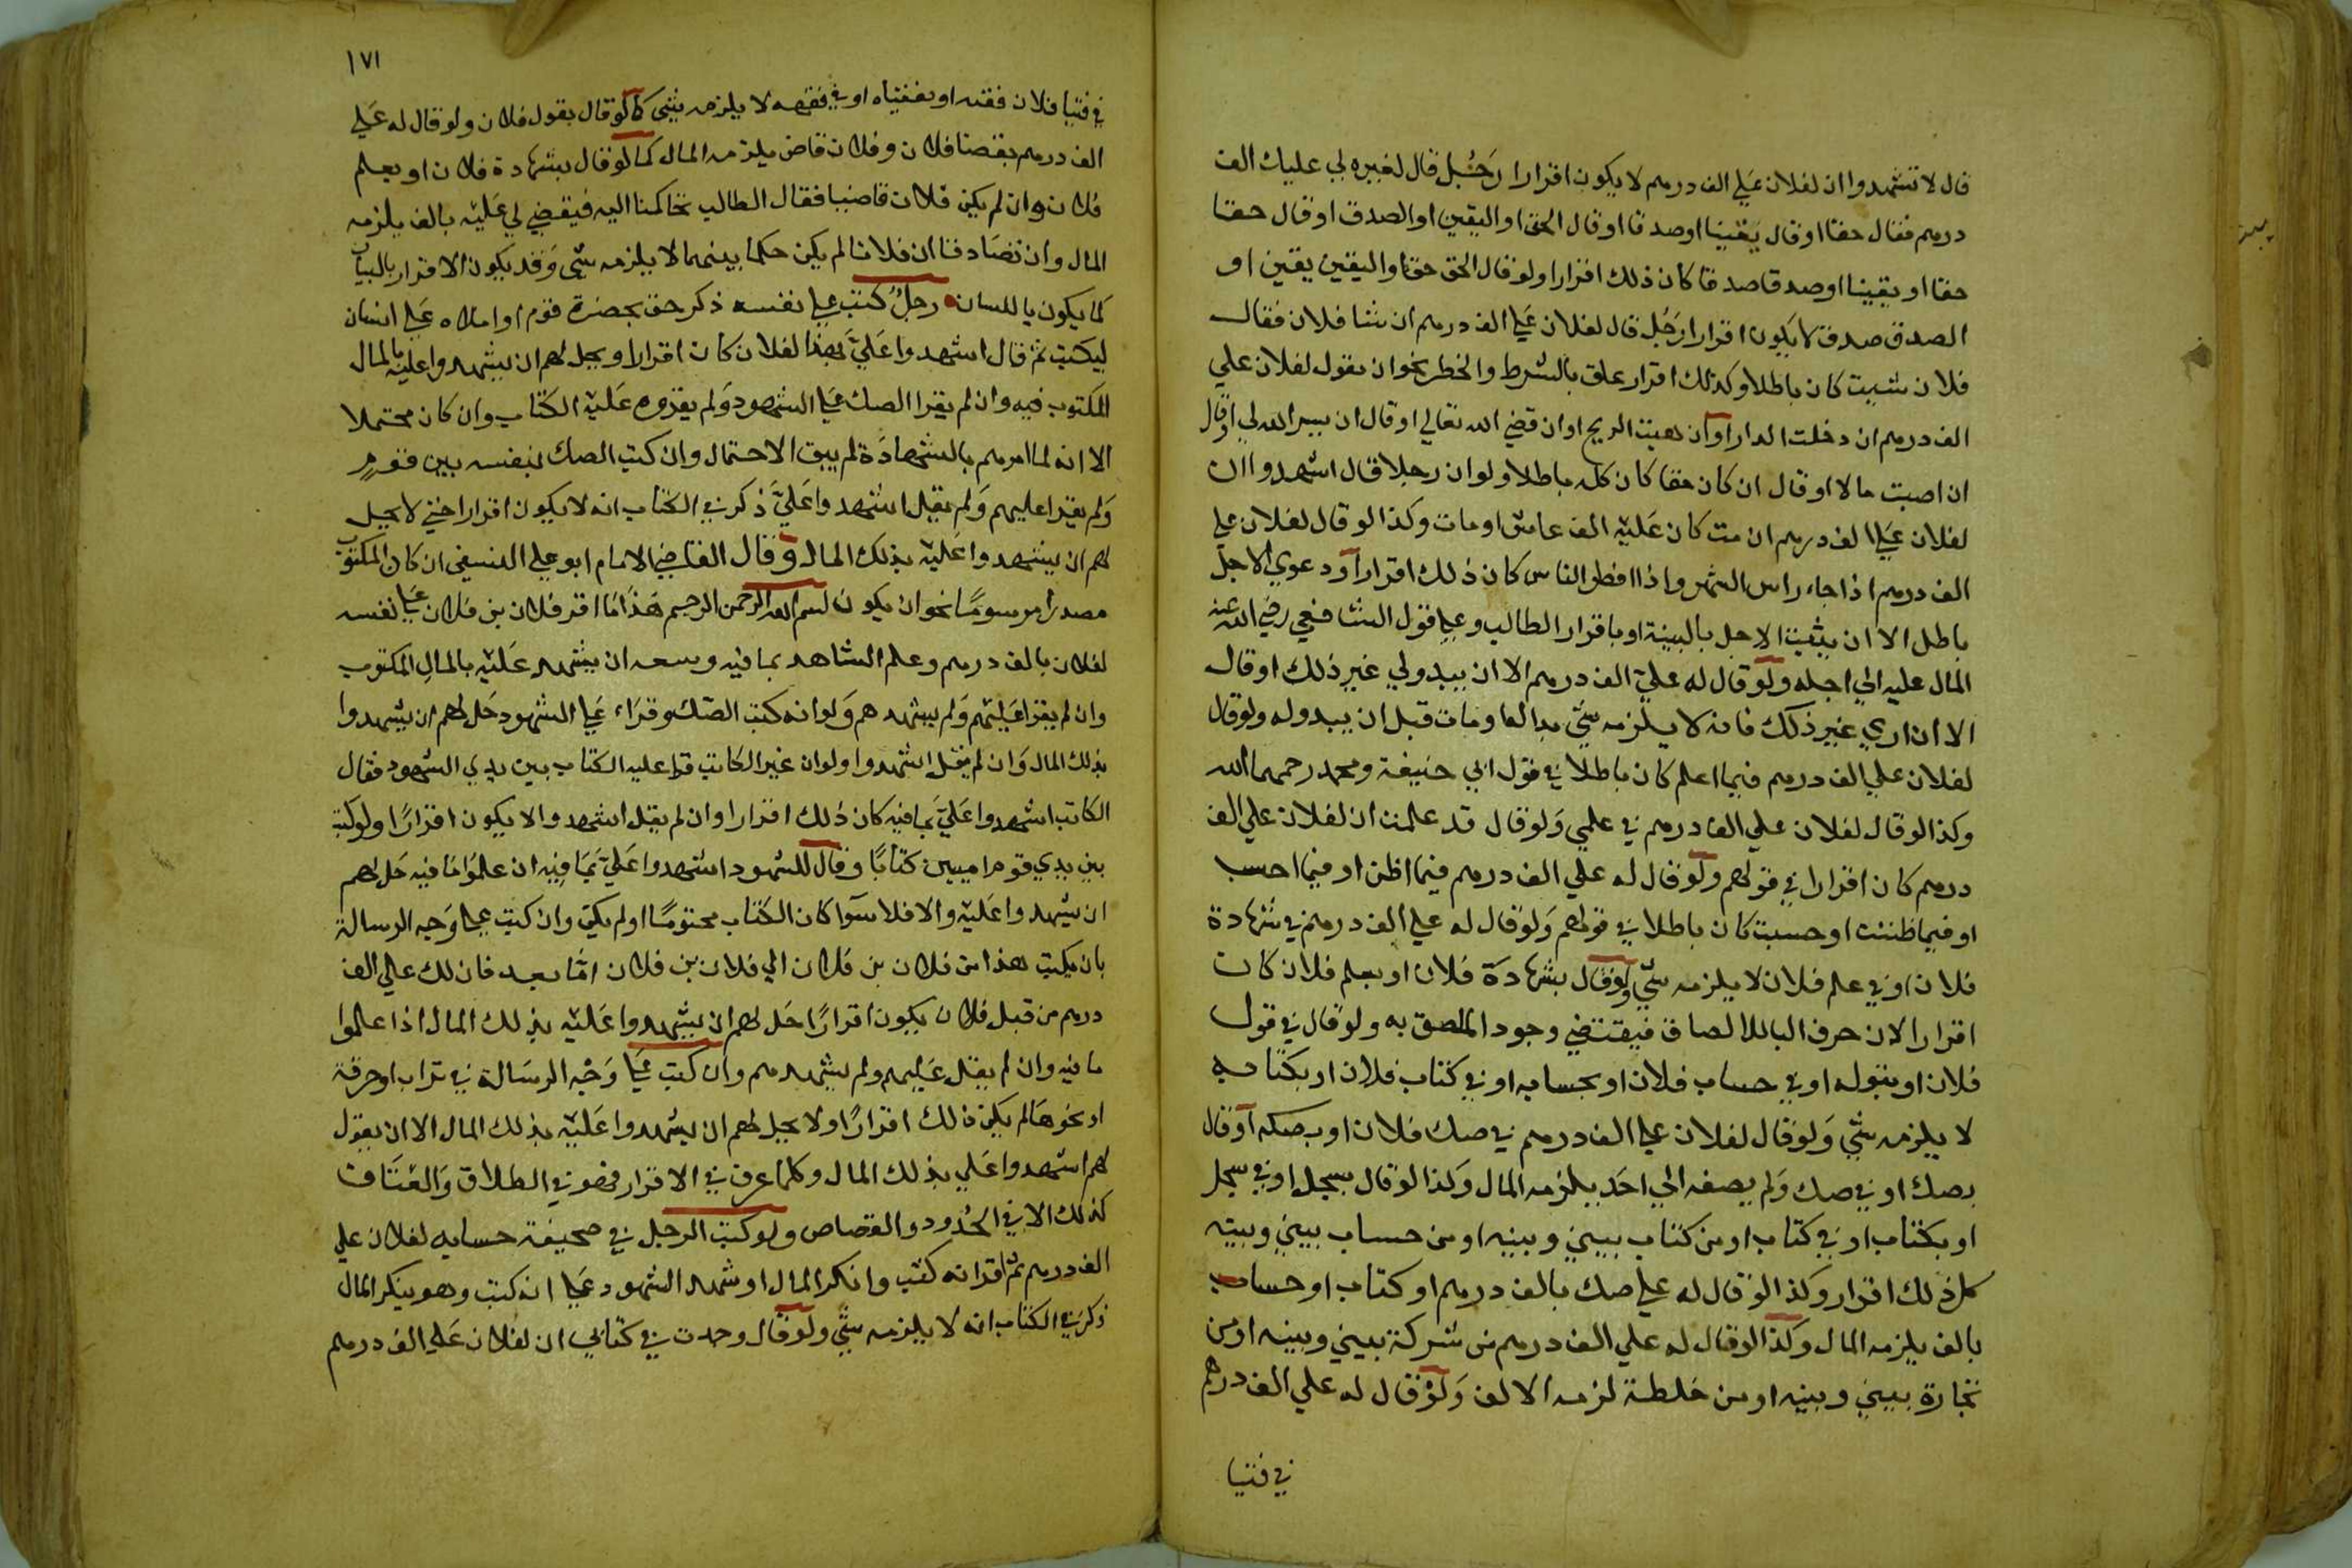 قال لا تشهدوا ان لفلان علي الف درهم لا يكون اقرارا رجل قال لغيره لي عليك الف
درهم فقال حقا او قال يقينا او صدقا او قال الحق او اليقين او الصدق او قال حقا
حقا او يقينا او صدقا صدقا كان ذلك اقرارا ولو قال الحق حق او اليقين يقين او
الصدق صدق لا يكون اقرارا رجل قال لفلان علي الف درهم ان شا فلان فقال
فلان شيت كان باطلا وكذلك اقرار علق بالشرط والخطر نحو ان يقول لفلان علي
الف درهم ان دخلت الدار او ان هبت الريح او ان قضي الله تعالي او قال ان يسر الله لي او قال
ان اصبت مالا او قال ان كان حقا كان كله باطلا ولو ان رجلا قال اشهدوا ان
لفلان علي الف درهم ان مت كان عليه الف عاش او مات وكذا لو قال لفلان علي
الف درهم اذا جاء راس الشهر واذا افطر الناس كان ذلك اقرارا ودعوي الاجل
باطل الا ان يثبت الاجل بالبينة او باقرار الطالب وعلي قول الشافعي رضي الله عنه
المال عليه الي اجله ولو قال له علي الف درهم الا ان يبدو لي غير ذلك او قال
الا ان اري غير ذلك فانه لا يلزمه شي بدا له او مات قبل ان يبدو له ولو قال
لفلان علي الف درهم فيما اعلم كان باطلا في قول ابي حنيفة ومحمد رحمهما الله
وكذا لو قال لفلان علي الف درهم في علمي ولو قال قد علمت ان لفلان علي الف
درهم كان اقرارا في قولهم ولو قال له علي الف درهم فيما اظن او فيما احسب
او فيما ظننت او حسبت كان باطلا في قولهم ولو قال له علي الف درهم في شهادة
فلان او في علم فلان لا يلزمه شي ولو قال بشهادة فلان او بعلم فلان كان
اقرارا لان حرف البا للالصاق فيقتضي وجود الملصق به ولو قال في قول
فلان او بقوله او في حساب فلان او بحسابه او في كتاب فلان او بكتابه
لا يلزمه شي ولو قال لفلان علي الف درهم في صك فلان او بصكه او قال
بصك او في صك ولم يضفه الي احد يلزمه المال وكذا لو قال بسجل او في سجل
او بكتاب او في كتاب او من كتاب بيني وبينه او من حساب بيني وبينه
كل ذلك اقرار وكذا لو قال له علي صك بالف درهم او كتاب او حساب
بالف يلزمه المال وكذا لو قال له علي الف درهم من شركة بيني وبينه او من
تجارة بيني وبينه او من خلطة لزمه الالف ولو قال له علي الف درهم
في فتيا
١٧١
في فتيا فلان فقه او بفتياه او في فقهه لا يلزمه شي كما لو قال بقول فلان ولو قال له علي
الف درهم بقضا فلان وفلان قاض يلزمه المال كما لو قال بشهادة فلان او بعلم
فلان وان لم يكن فلان قاضيا فقال الطالب تحاكمنا اليه فيقضي لي عليه بالف يلزمه
المال وان تصادقا ان فلانا لم يكن حكما بينهما لا يلزمه شي وقد يكون الاقرار بالبيان
كما يكون باللسان رجل كتب علي نفسه ذكر حق بحضرة قوم او املاه علي انسان
ليكتب ثم قال اشهدوا علي بهذا لفلان كان اقرارا ويحل لهم ان يشهدوا عليه بالمال
المكتوب فيه وان لم يقرا الصك علي الشهود ولم يقروه عليه الكتاب وان كان محتملا
الا انه لما امرهم بالشهادة لم يبق الاحتمال وان كتب الصك بنفسه بين قوم
ولم يقرا عليهم ولم يقل اشهدوا علي ذكر في الكتاب انه لا يكون اقرارا حتي لا يحل
لهم ان يشهدوا عليه بذلك المال وقال القاضي الامام ابو علي النسفي ان كان المكتوب
مصدرا مرسوما نحو ان يكون بسم الله الرحمن الرحيم هذا ما اقر فلان بن فلان علي نفسه
لفلان بالف درهم وعلم الشاهد بما فيه وسعه ان يشهد عليه بالمال المكتوب
وان لم يقرا عليهم ولم يشهدهم ولو انه كتب الصك وقراء علي الشهود حل لهم ان يشهدوا
بذلك المال وان لم يقل اشهدوا ولو ان غير الكاتب قرا عليه الكتاب بين يدي الشهود فقال
الكاتب اشهدوا علي بما فيه كان ذلك اقرارا وان لم يقل اشهدوا لا يكون اقرارا ولو كتب
بين يدي قوم اميين كتابا وقال للشهود اشهدوا علي بما فيه ان علموا ما فيه حل لهم
ان يشهدوا عليه والا فلا سوا كان الكتاب مختوما او لم يكن وان كتب علي وجه الرسالة
بان يكتب هذا من فلان بن فلان الي فلان بن فلان اما بعد فان لك علي الف
درهم من قبل فلان يكون اقرارا حل لهم ان يشهدوا عليه بذلك المال اذا علموا
ما فيه وان لم يقل عليهم ولم يشهدهم وان كتب علي وجه الرسالة في تراب او خرقة
او نحوها لم يكن ذلك اقرارا ولا يحل لهم ان يشهدوا عليه بذلك المال الا ان يقول
لهم اشهدوا علي بذلك المال وكلما عرف في الاقرار فهو في الطلاق والعتاق
كذلك الا في الحدود والقصاص ولو كتب الرجل في صحيفة حسابه لفلان علي
الف درهم ثم اقر انه كتب وانكر المال او شهد الشهود علي انه كتب وهو ينكر المال
ذكر في الكتاب انه لا يلزمه شي ولو قال وجدت في كتابي ان لفلان علي الف درهم